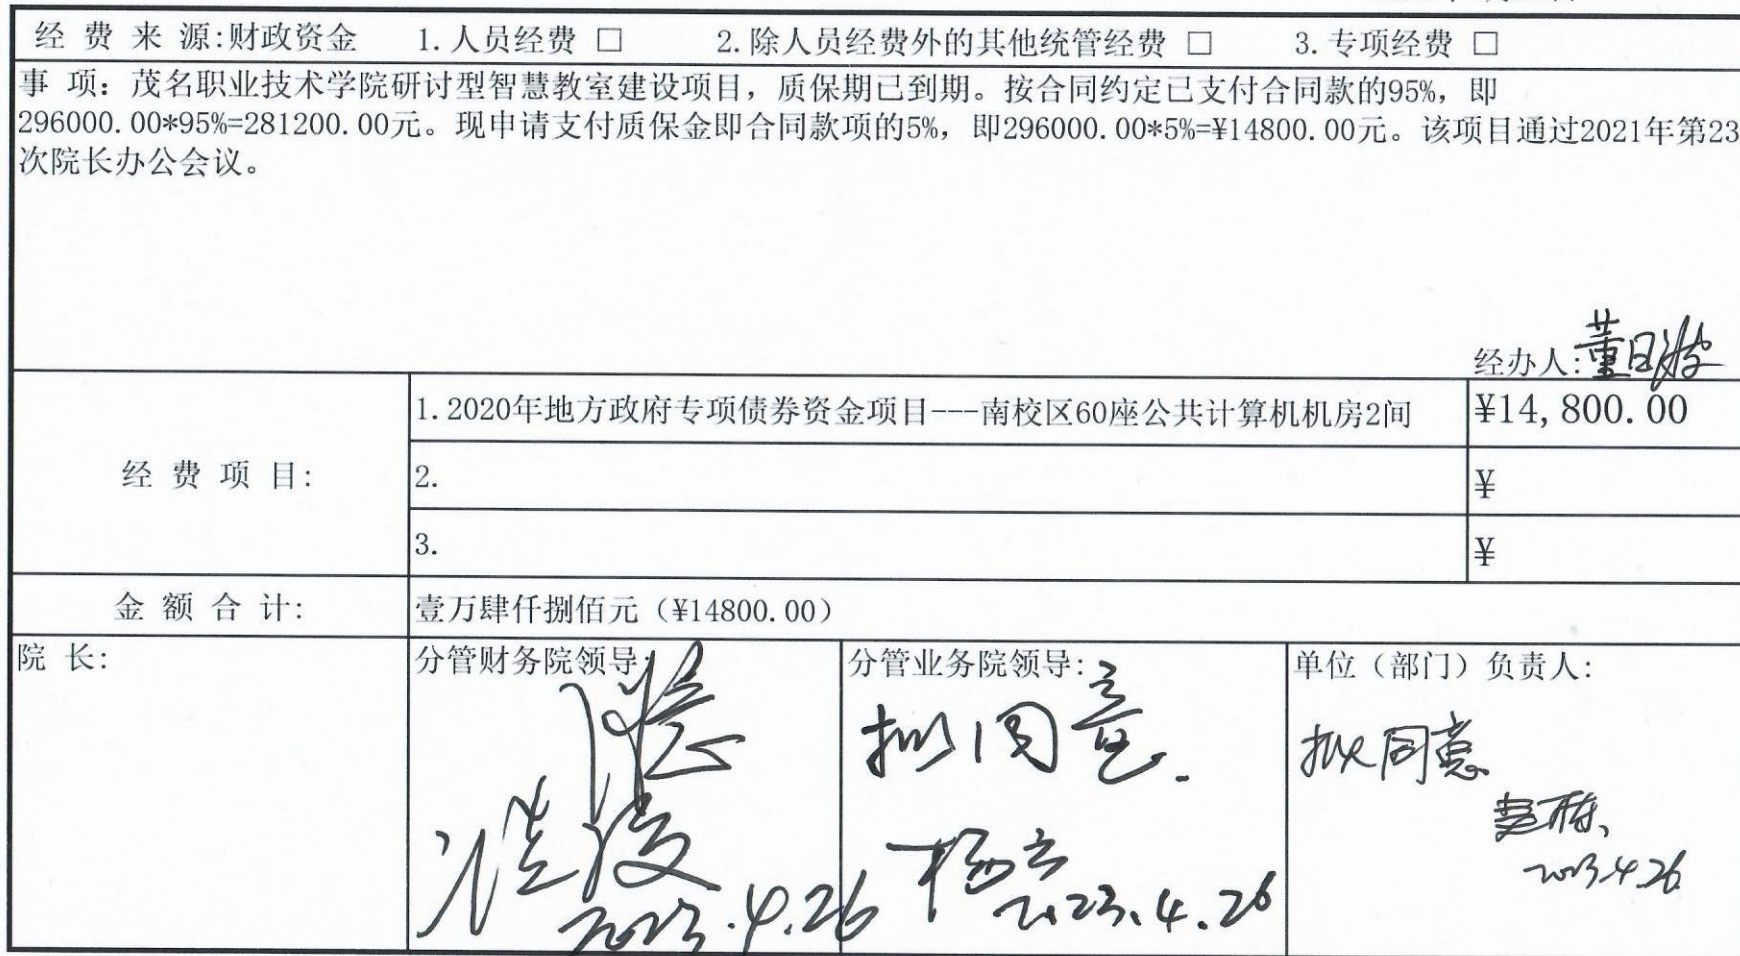 经 费 来 源:财政资金 1.人员经费 □ 2.除人员经费外的其他统管经费 □ 3.专项经费 □
事 项：茂名职业技术学院研讨型智慧教室建设项目，质保期已到期。按合同约定已支付合同款的95%，即
296000.00*95%=281200.00元。现申请支付质保金即合同款项的5%，即296000.00*5%=¥14800.00元。该项目通过2021年第23
次院长办公会议。
经办人:董日波
经 费 项 目:
1.2020年地方政府专项债券资金项目---南校区60座公共计算机机房2间 ¥14,800.00
2. ¥
3. ¥
金 额 合 计: 壹万肆仟捌佰元（¥14800.00）
院 长: 分管财务院领导: 分管业务院领导: 单位（部门）负责人:
拟同意 拟同意
杨云
2023.4.26 2023.4.26 2023.4.26